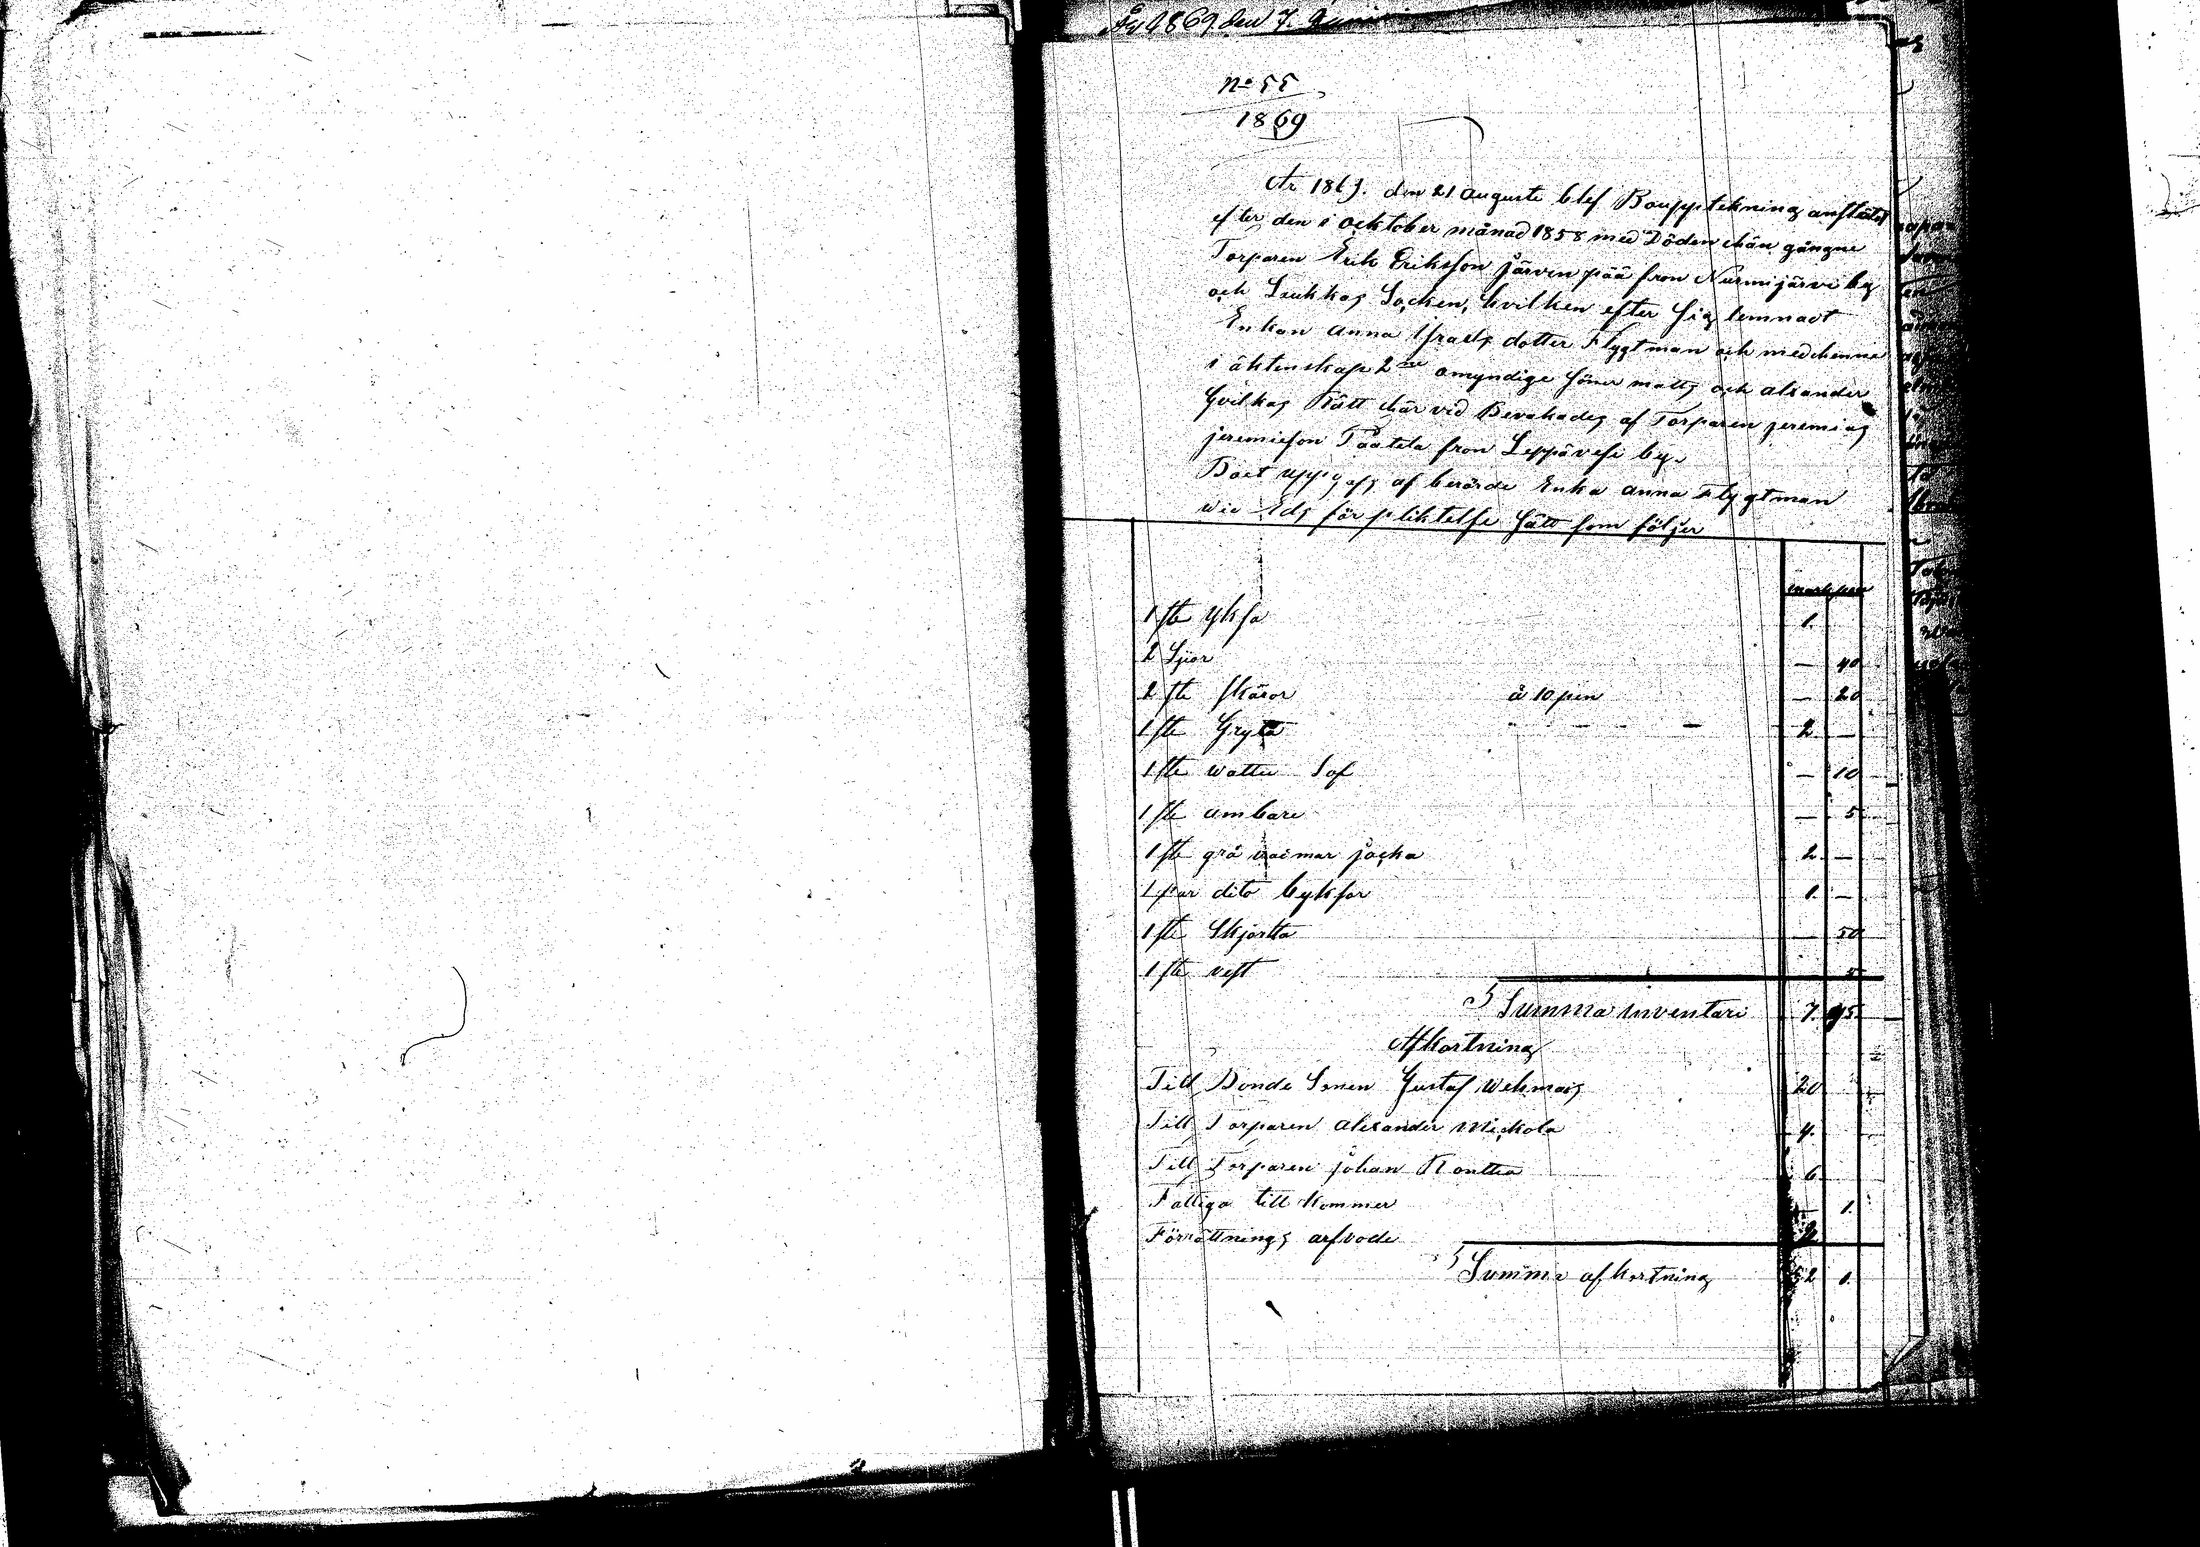 År 1869 den 7. Juni
No 55
1869
År 1869. den 21 auguste blef Bouppteknin̈g anstäld
efter den i ocktober månad 1858 med Döden hän gångne
Torparen Erik Eriksson Järvenpää fron Nurmijärvi by
och Laukkas Socken, hvilken efter sig lemnadt
Enkan Anna Israels dotter Flygtman och med henne
i äktenskap 2ne omyndige Söner matts och alxander
hvilkas Rätt här vid Bevakades af Torparen jeremias
jeremieson Taatila fron Leppävesi by.
Boet uppgafs af berörde Enka anna Flygtman
wie Eds för pliktelse Sått som följer
mark pen
1 ste yksa 1.
2 Liar — 40
2 ste skäror à 10 pen — 20
1 ste Gryta 2 —
1 ste wattu Sof — 10
1 ste ambare — 5
1 ste grå jacka 2 —
1 par dito byksor 1. —
1 ste Skjortta — 50
1 ste vest 5
Summa inventari 7. 95.
Afkortning
Till Bonde Sonen Gustaf wehmas 20
Till Torparen alexander Mickola 4.
Till Torparen johan Rontta 6
Fattiga till kommer — 1.
Förrättnings arfvode 2
Summa afkortning 32 1.